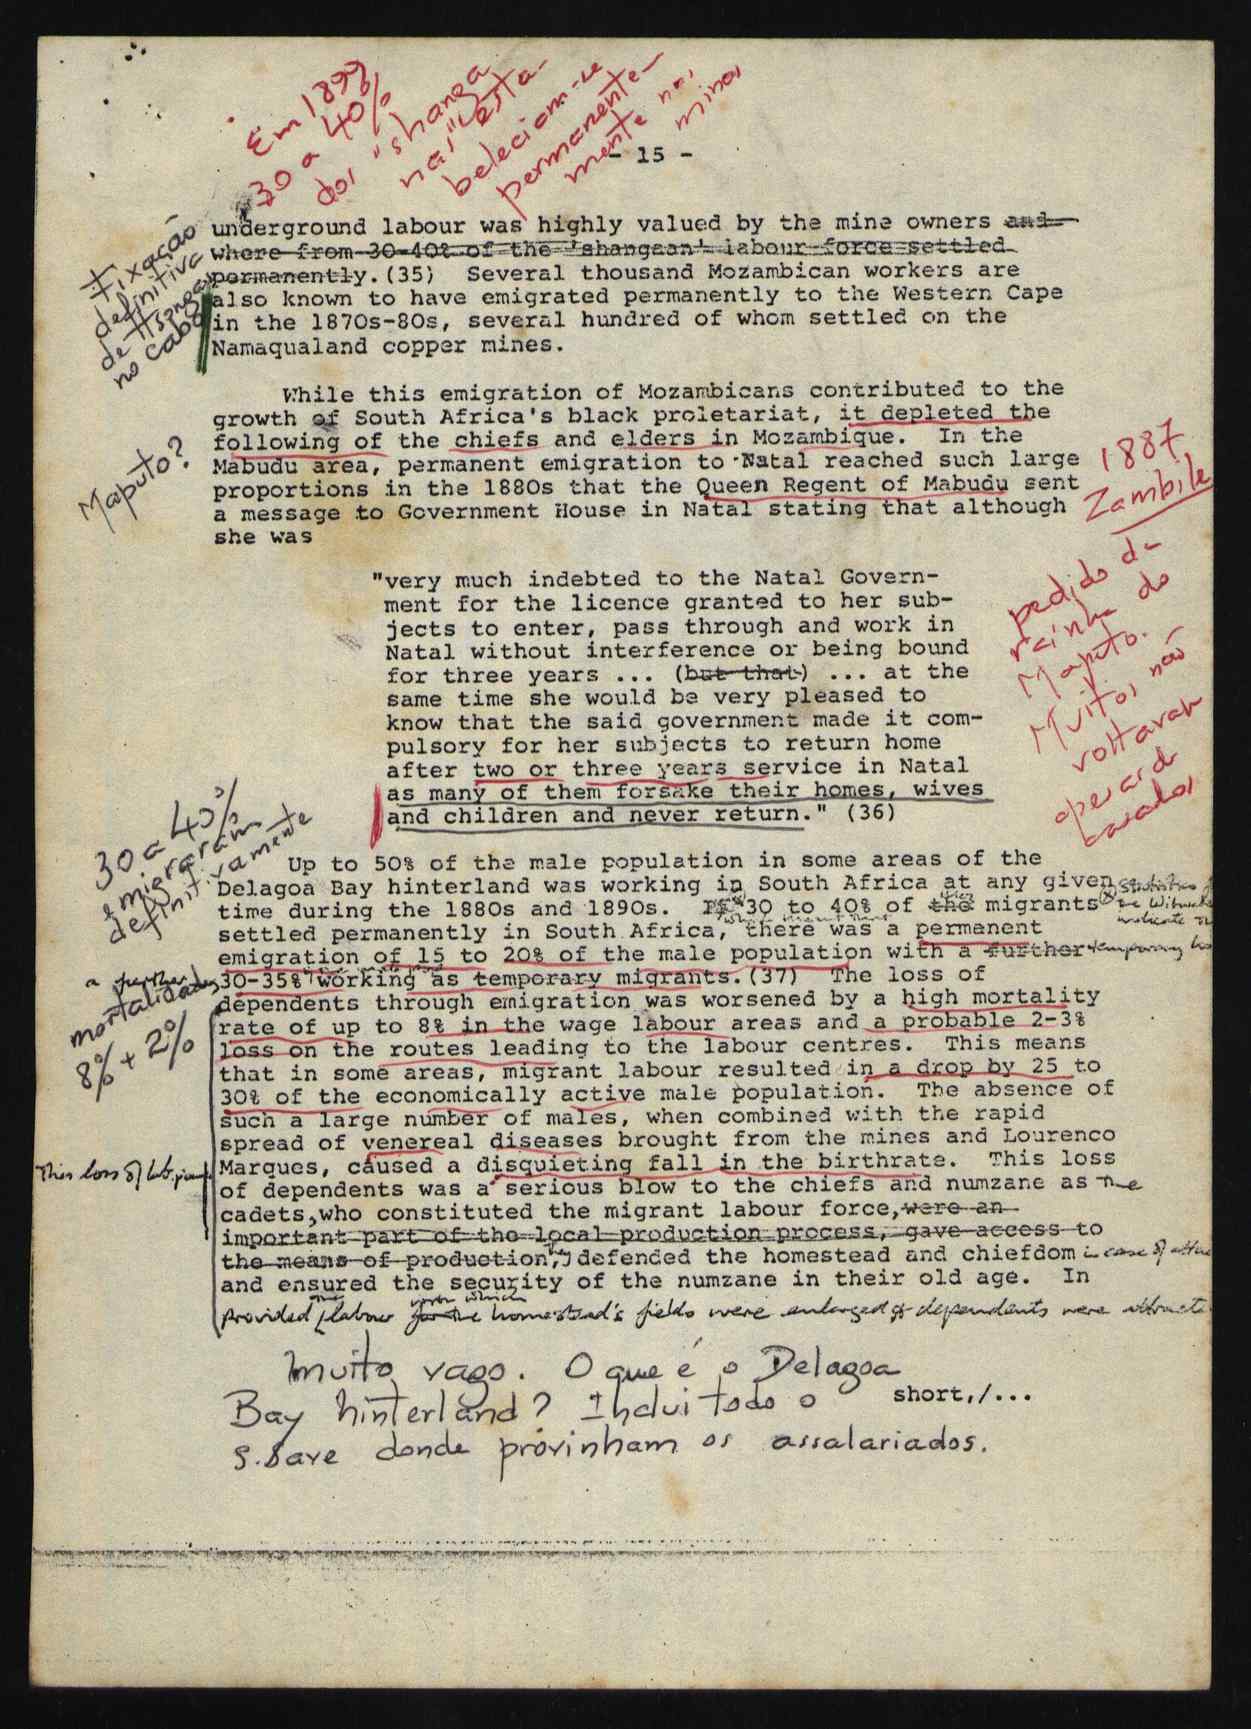 Em 1899
30 a 40%
dos "shanga
nas" esta-
beleciam-se
permanente-
mente nas
minas
- 15 -
underground labour was highly valued by the mine owners and
where from 30-40% of the 'shangaan' labour force settled
permanently. (35) Several thousand Mozambican workers are
also known to have emigrated permanently to the Western Cape
in the 1870s-80s, several hundred of whom settled on the
Namaqualand copper mines.
Fixação
definitiva
de
no Cabo
While this emigration of Mozambicans contributed to the
growth of South Africa's black proletariat, it depleted the
following of the chiefs and elders in Mozambique. In the
Mabudu area, permanent emigration to Natal reached such large
proportions in the 1880s that the Queen Regent of Mabudu sent
a message to Government House in Natal stating that although
she was
Maputo?
1887
Zambile
pedido da
rainha do
Maputo.
Muitos não
voltavam
apesar de
casados
"very much indebted to the Natal Govern-
ment for the licence granted to her sub-
jects to enter, pass through and work in
Natal without interference or being bound
for three years ... (but that) ... at the
same time she would be very pleased to
know that the said government made it com-
pulsory for her subjects to return home
after two or three years service in Natal
as many of them forsake their homes, wives
and children and never return." (36)
30 a 40%
emigraram
definitivamente
Up to 50% of the male population in some areas of the
Delagoa Bay hinterland was working in South Africa at any given
time during the 1880s and 1890s. 30 to 40% of the migrants
settled permanently in South Africa, there was a permanent
emigration of 15 to 20% of the male population with a further temporary
30-35% working as temporary migrants. (37) The loss of
dependents through emigration was worsened by a high mortality
rate of up to 8% in the wage labour areas and a probable 2-3%
loss on the routes leading to the labour centres. This means
that in some areas, migrant labour resulted in a drop by 25 to
30% of the economically active male population. The absence of
such a large number of males, when combined with the rapid
spread of venereal diseases brought from the mines and Lourenco
Marques, caused a disquieting fall in the birthrate. This loss
of dependents was a serious blow to the chiefs and numzane as the
cadets, who constituted the migrant labour force, were an
important part of the local production process, gave access to
the means of production, defended the homestead and chiefdom in case of
and ensured the security of the numzane in their old age. In
provided labour for the homestead's fields were enlarged & dependents were
a further
mortalidade
8% + 2%
This loss of
Muito vago. O que é o Delagoa
Bay hinterland? Inclui todo o
S. Save donde provinham os assalariados.
short,/...